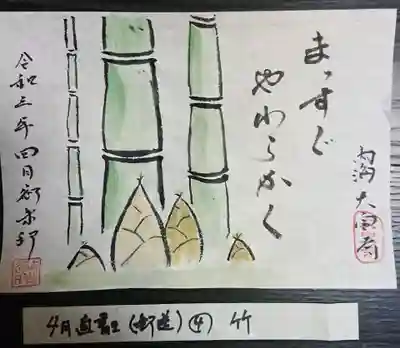 まっすぐ
やわらかく
令和三年四月御朱印
4月直書き(郵送)④ 竹